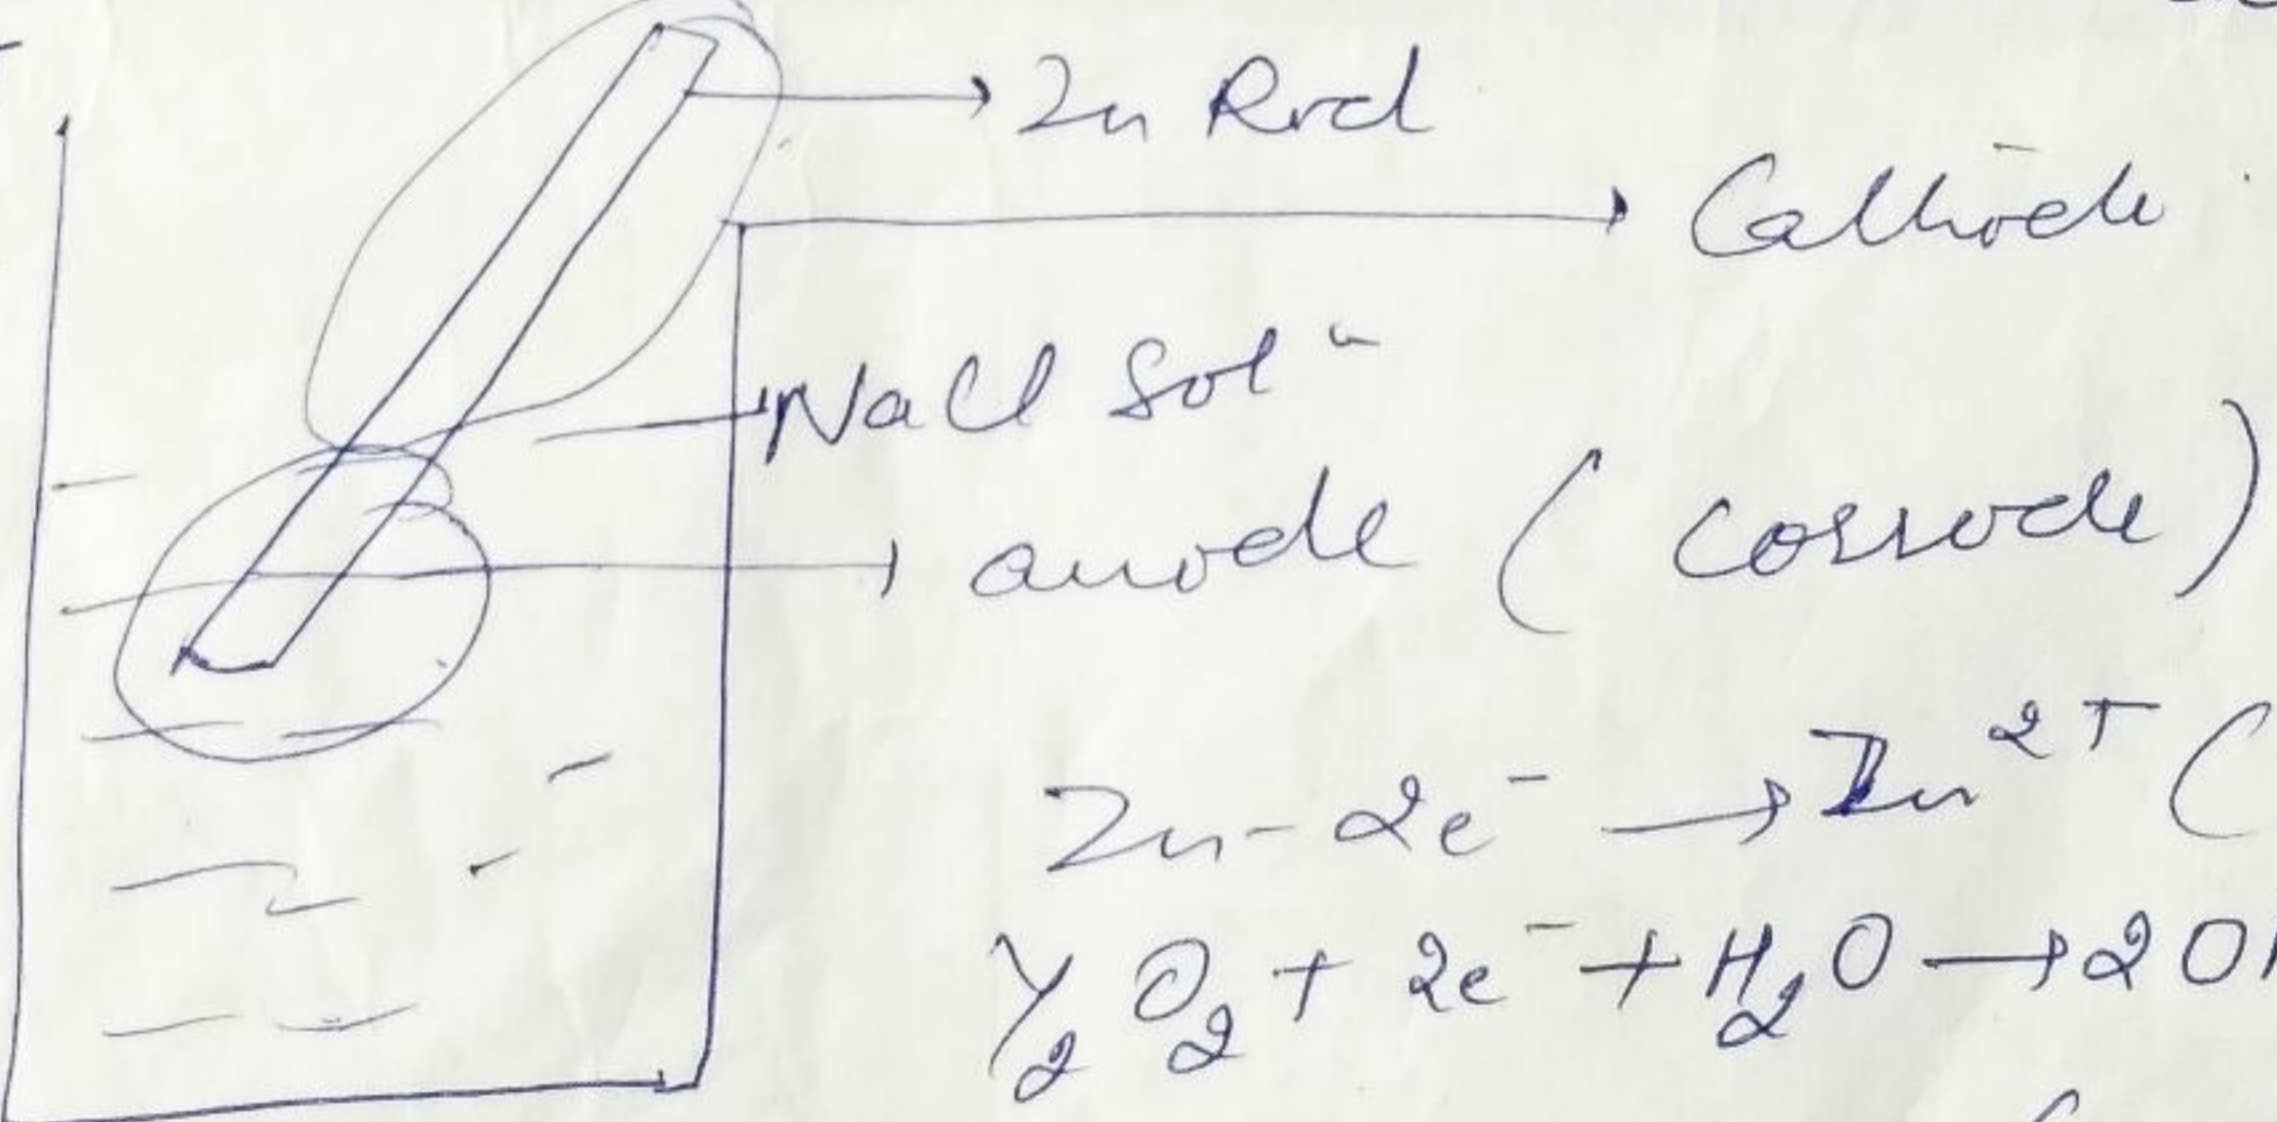 Zn Rod
Cathode
NaCl Solⁿ
anode (corrode)
Zn - 2e⁻ → Zn²⁺ (
1/2 O₂ + 2e⁻ + H₂O → 2OH